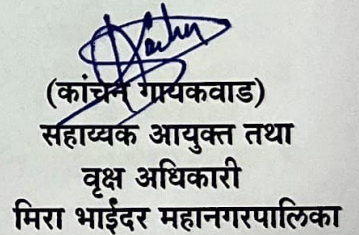 (कांचन गायकवाड)
सहाय्यक आयुक्त तथा
वृक्ष अधिकारी
मिरा भाईंदर महानगरपालिका